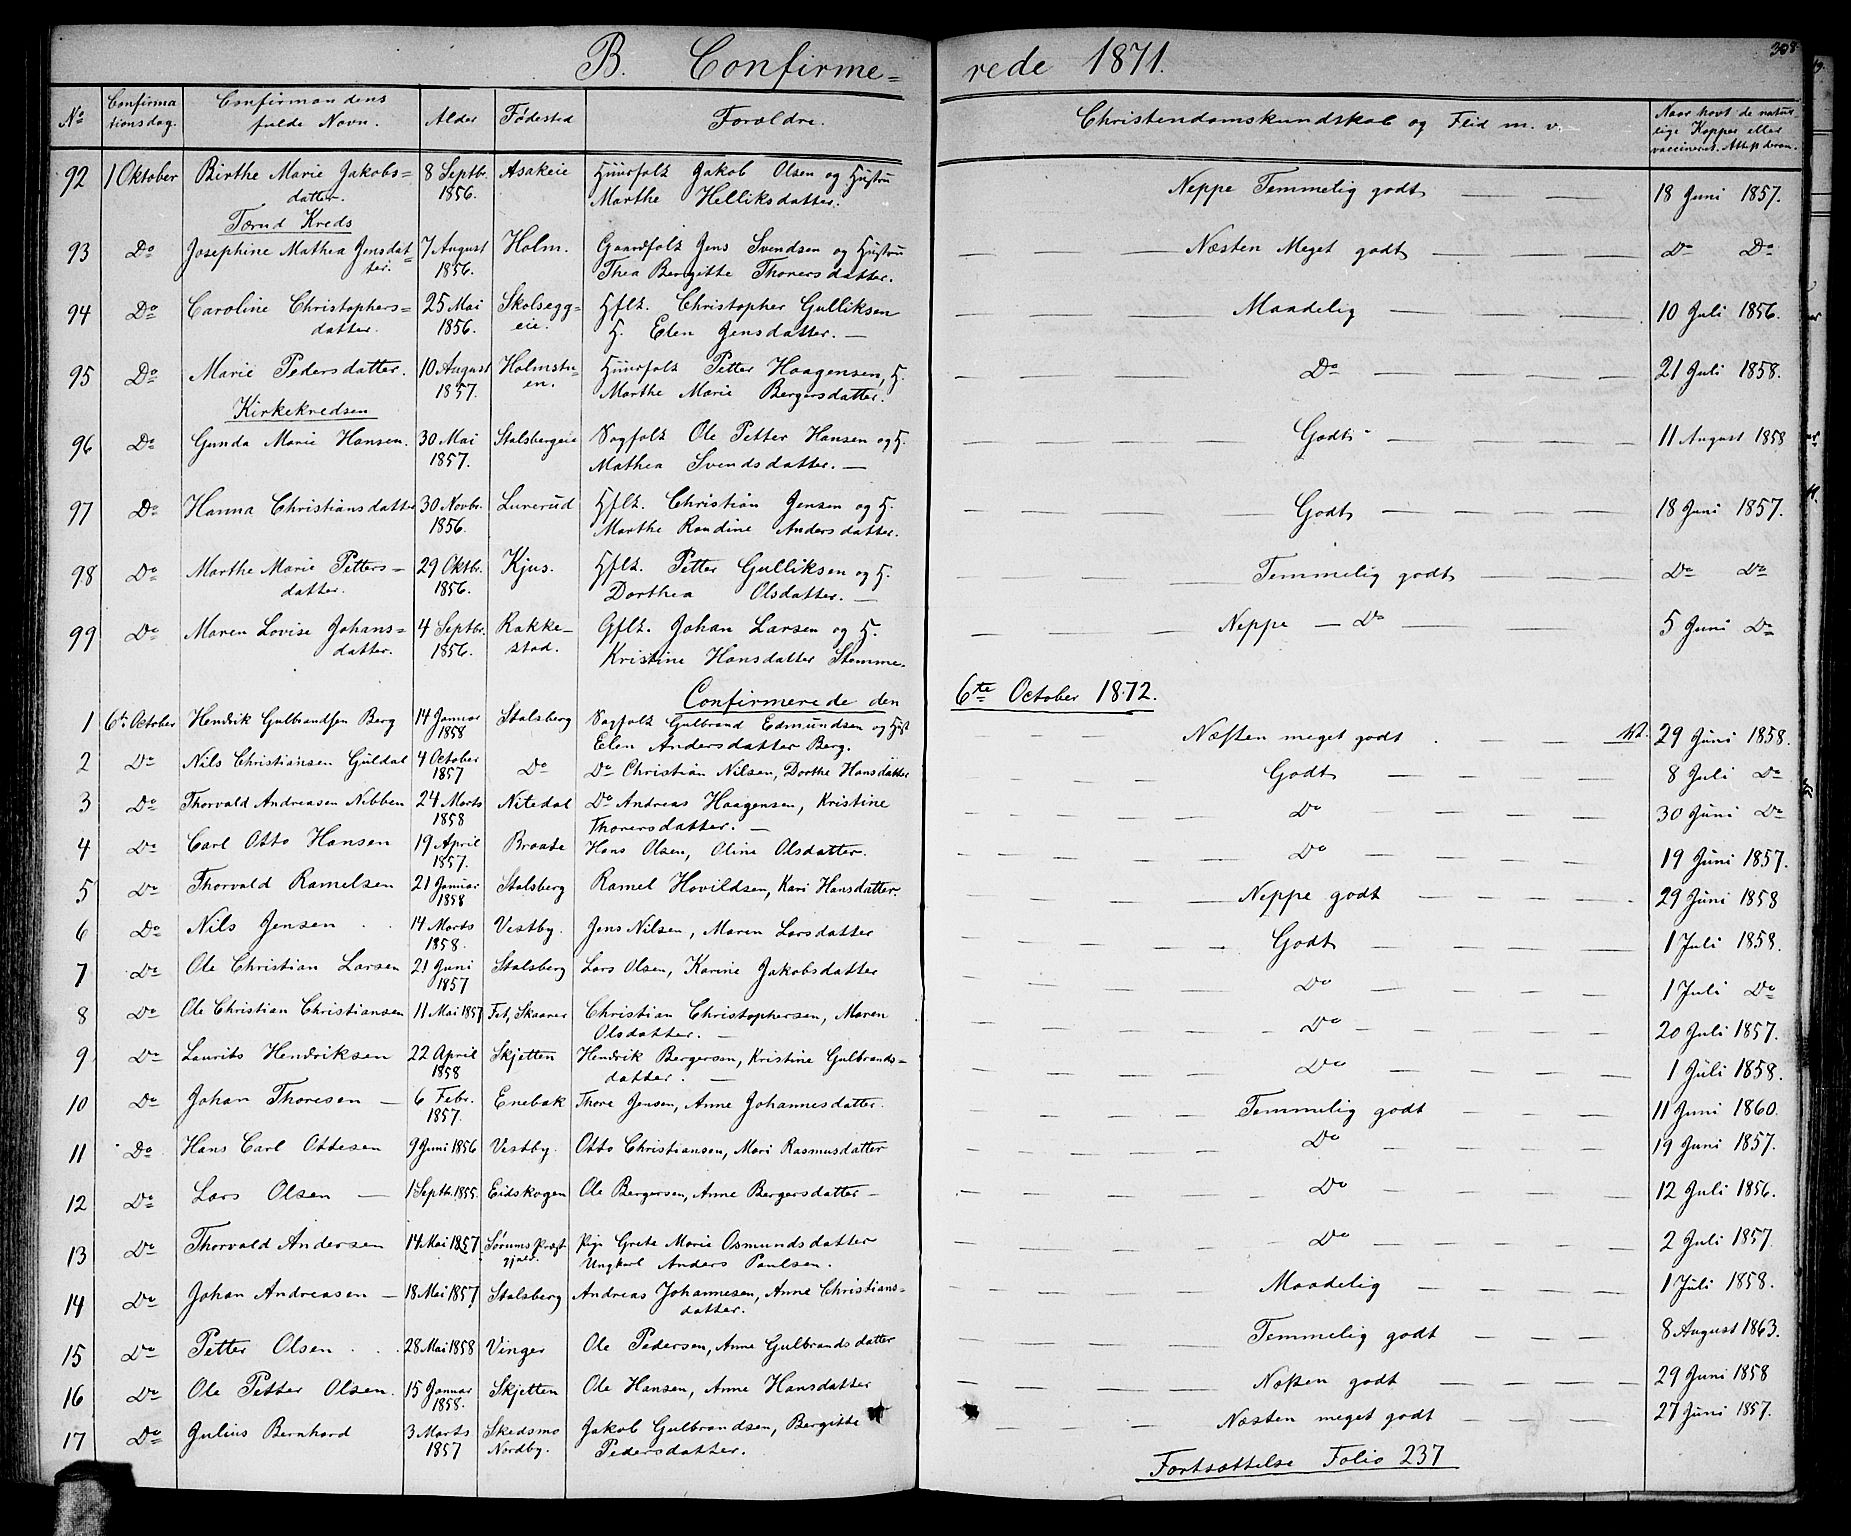 B. Confirme= rede 1871.
308
No Confirmationsdag. Confirmandens fulde Navn. Alder Fødested Forældre. Christendomskundskab og Flid m. v. Naar havt de naturlige Kopper eller vaccineret. Attest derom.
92 1 Oktober Birthe Marie Jakobs= 8 Septbr. Asakeie Huusfolk Jakob Olsen og Hustru Neppe Temmelig godt 18 Juni 1857.
datter. 1856. Marthe Helliksdatter.
Tærud Kreds
93 Do Josephine Mathea Jensdat= 7 August Holm. Gaardfolk Jens Svendsen og Hustru Næsten Meget godt Do Do
ter. 1856. Thea Bergitte Thorersdatter.
94 Do Caroline Christophers= 25 Mai Skolsegg= Hflk. Christopher Gulliksen Maadelig 10 Juli 1856.
datter. 1856. eie. H. Elen Jensdatter.
95 Do Marie Pedersdatter. 10 August Holmstu= Huusfolk Petter Haagensen, H. Do 21 Juli 1858.
1857. en. Marthe Marie Bergersdatter.
Kirkekredsen
96 Do Gunda Marie Hansen. 30 Mai Stalsbergeie Sagfolk Ole Petter Hansen og H. Godt 11 August 1858
1857. Mathea Svendsdatter.
97 Do Hanna Christiansdatter 30 Novbr. Lunerud Hflk. Christian Jensen og H. Godt 18 Juni 1857.
1856. Marthe Randine Andersdatter.
98 Do Marthe Marie Petters= 29 Oktbr. Kjus. Hflk. Petter Gulliksen og H. Temmelig godt Do Do
datter. 1856. Dorthea Olsdatter.
99 Do Maren Lovise Johans= 4 Septbr. Rakke= Gflk. Johan Larsen og H. Neppe — Do 5 Juni Do
datter. 1856. stad. Kristine Hansdatter Stomme.
Confirmerede den 6te October 1872.
1 6te October Hendrik Gulbrandsen Berg 14 Januar Stalsberg Sagfolk Gulbrand Edmundsen og Hust Næsten meget godt 29 Juni 1858.
1858 Elen Andersdatter Berg.
2 Do Nils Christiansen Güldal 4 October Do Do Christian Nilsen, Dorthe Hansdatter Godt 8 Juli Do
1857
3 Do Thorvald Andreasen Nibben 24 Marts Nitedal Do Andreas Haagensen, Kristine Do 30 Juni Do
1858 Thorersdatter.
4 Do Carl Otto Hansen 19 April Braate Hans Olsen, Oline Olsdatter. Do 19 Juni 1857.
1857.
5 Do Thorvald Ramelsen 21 Januar Stalsberg Ramel Hovildsen, Kari Hansdatter. Neppe godt 29 Juni 1858
1858
6 Do Nils Jensen 14 Marts Vestby. Jens Nilsen, Maren Larsdatter Godt 1 Juli 1858.
1858.
7 Do Ole Christian Larsen 21 Juni Stalsberg Lars Olsen, Karine Jakobsdatter Do 1 Juli Do
1857
8 Do Ole Christian Christiansen 11 Mai 1857 Fet, Skaarer Christian Christophersen, Maren Do 20 Juli 1857.
Olsdatter.
9 Do Laurits Hendriksen 22 April Skjetten Hendrik Bergersen, Kristine Gulbrands= Do 1 Juli 1858.
1858 datter.
10 Do Johan Thoresen 6 Febr. Enebak Thore Jensen, Anne Johannesdatter. Temmelig godt 11 Juni 1860.
1857.
11 Do Hans Carl Ottesen 9 Juni 1856 Vestby. Otto Christiansen, Mari Rasmusdatter Do 19 Juni 1857.
12 Do Lars Olsen 1 Septb. 1855. Eidskogen Ole Bergersen, Anne Bergersdatter Do 12 Juli 1856.
13 Do Thorvald Andersen 14 Mai 1857 Sørums Præst= Pige Grete Marie Osmundsdatter Do 2 Juli 1857.
gjeld. Ungkarl Anders Paulsen.
14 Do Johan Andreasen 18 Mai 1857 Stalsberg Andreas Johannesen, Anne Christians= Maadelig 1 Juli 1858.
datter.
15 Do Petter Olsen 28 Mai 1858 Vinger Ole Pedersen, Anne Gulbrandsdatter Temmelig godt 8 August 1863.
16 Do Ole Petter Olsen. 15 Januar Skjetten Ole Hansen, Anne Hansdatter Næsten godt 29 Juni 1858
1858.
17 Do Julius Bernhard 3 Marts Skedsmo Jakob Gulbrandsen, Bergitte Næsten meget godt 27 Juni 1857.
1857 Nordby. Pedersdatter.
Fortsættelse Folio 237